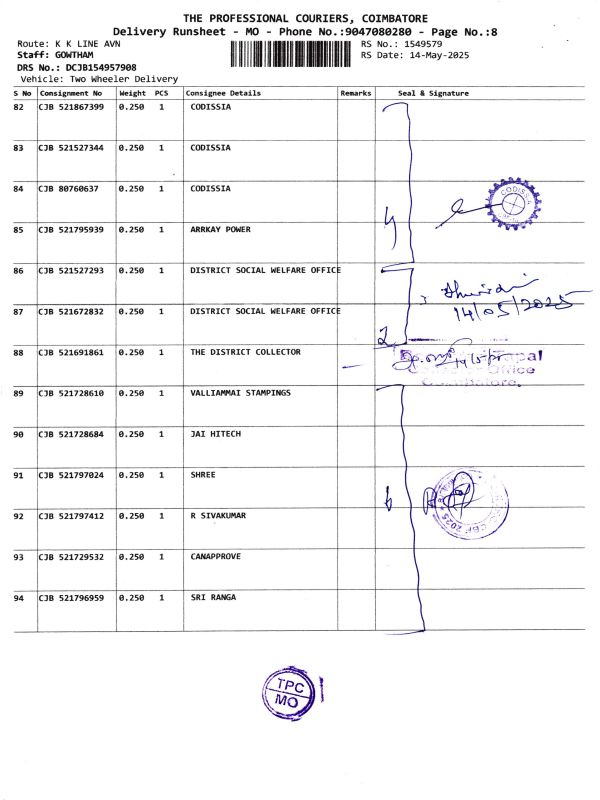 THE PROFESSIONAL COURIERS, COIMBATORE
Delivery Runsheet - MO - Phone No.:9047080280 - Page No.:8
Route: K K LINE AVN
RS No.: 1549579
Staff: GOWTHAM
RS Date: 14-May-2025
DRS No.: DCJB154957908
Vehicle: Two Wheeler Delivery
S No Consignment No Weight PCS Consignee Details Remarks Seal & Signature
82 CJB 521867399 0.250 1 CODISSIA
83 CJB 521527344 0.250 1 CODISSIA
84 CJB 80760637 0.250 1 CODISSIA
CODISSIA
85 CJB 521795939 0.250 1 ARRKAY POWER
4
86 CJB 521527293 0.250 1 DISTRICT SOCIAL WELFARE OFFICE
14/05/2025
87 CJB 521672832 0.250 1 DISTRICT SOCIAL WELFARE OFFICE
2
88 CJB 521691861 0.250 1 THE DISTRICT COLLECTOR
Office
Coimbatore.
89 CJB 521728610 0.250 1 VALLIAMMAI STAMPINGS
90 CJB 521728684 0.250 1 JAI HITECH
91 CJB 521797024 0.250 1 SHREE
6
92 CJB 521797412 0.250 1 R SIVAKUMAR
93 CJB 521729532 0.250 1 CANAPPROVE
94 CJB 521796959 0.250 1 SRI RANGA
TPC
MO